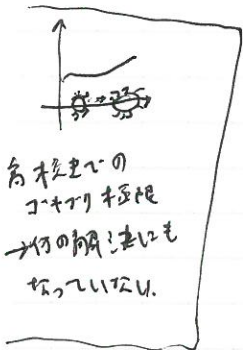 高校までの
ゴキブリ極限
→何の解決にも
なっていない.